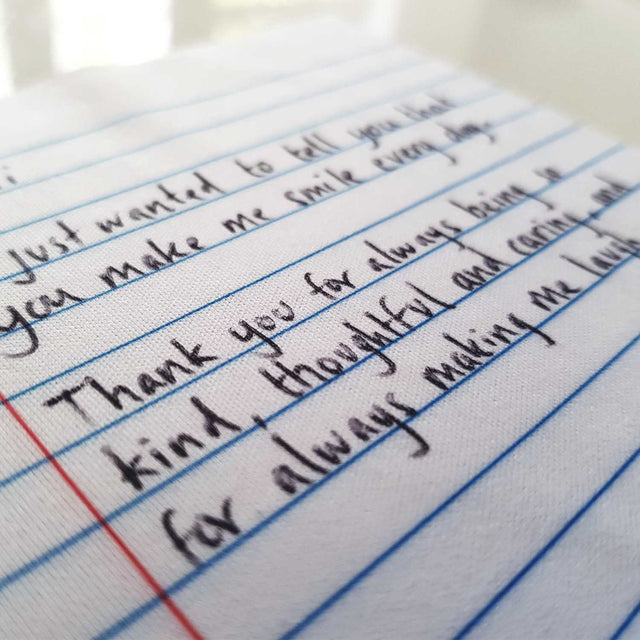 just wanted to tell you that
you make me smile every day.
Thank you for always being so
kind, thoughtful and caring and
for always making me laugh